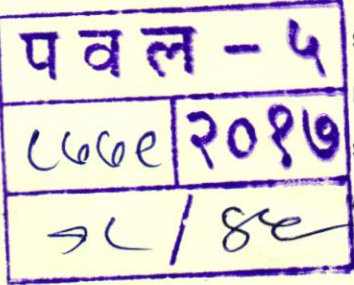 प व ल - ५
८७७९ २०१७
२८ / ४९